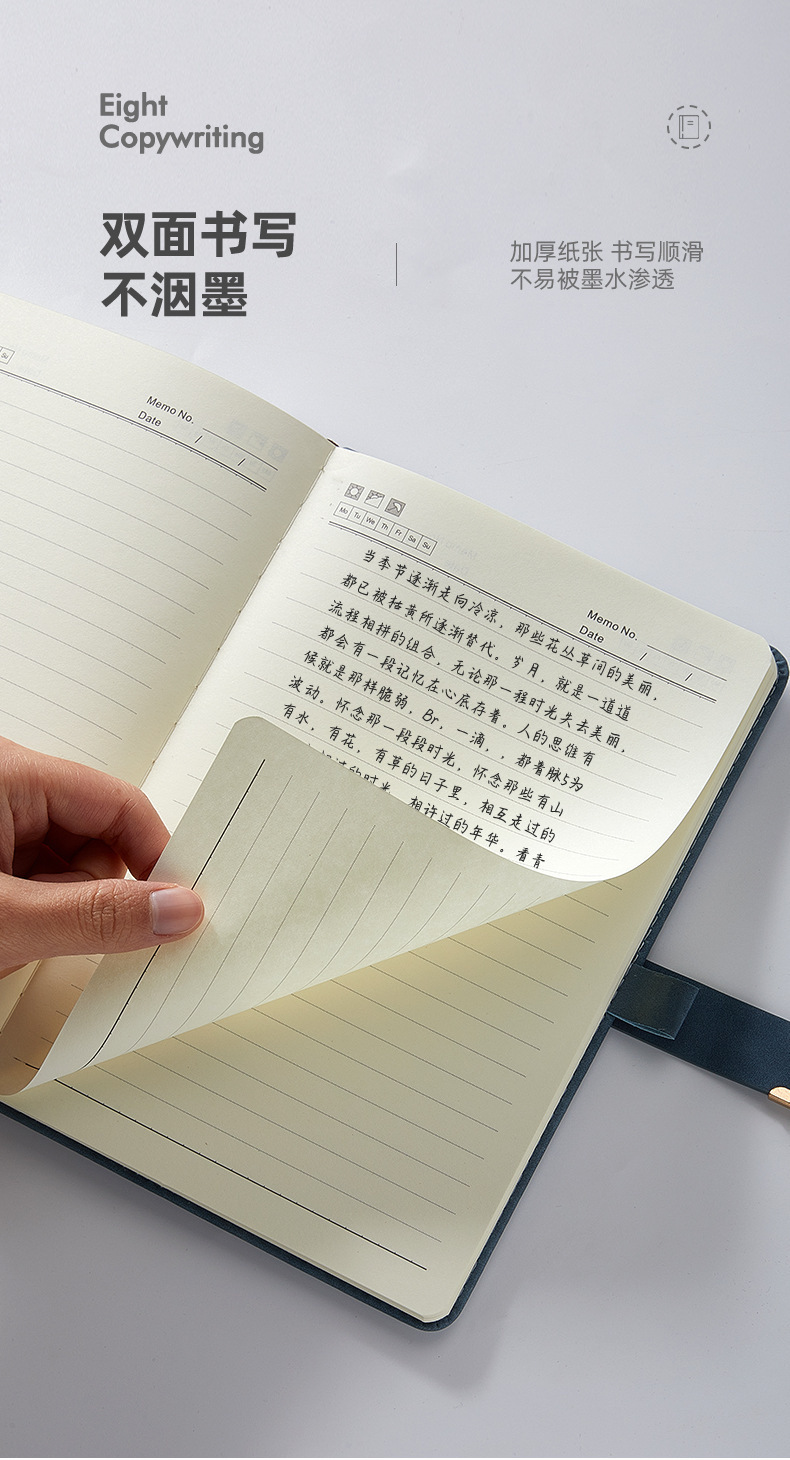 Eight
Copywriting
双面书写
不洇墨
加厚纸张 书写顺滑
不易被墨水渗透
Su
Memo No.
Date / /
Mo Tu We Th Fr Sa Su
Memo No.
Date / /
当季节逐渐走向冷凉，那些花丛草间的美丽，
都已被枯黄所逐渐替代。岁月，就是一道道
流程相拼的组合，无论那一程时光失去美丽，
都会有一段记忆在心底存着。人的思维有
候就是那样脆弱，Br，一滴，，都着脉5为
波动。怀念那一段段时光，怀念那些有山
有水，有花，有草的日子里，相互走过的
过的时光，相许过的年华。看青